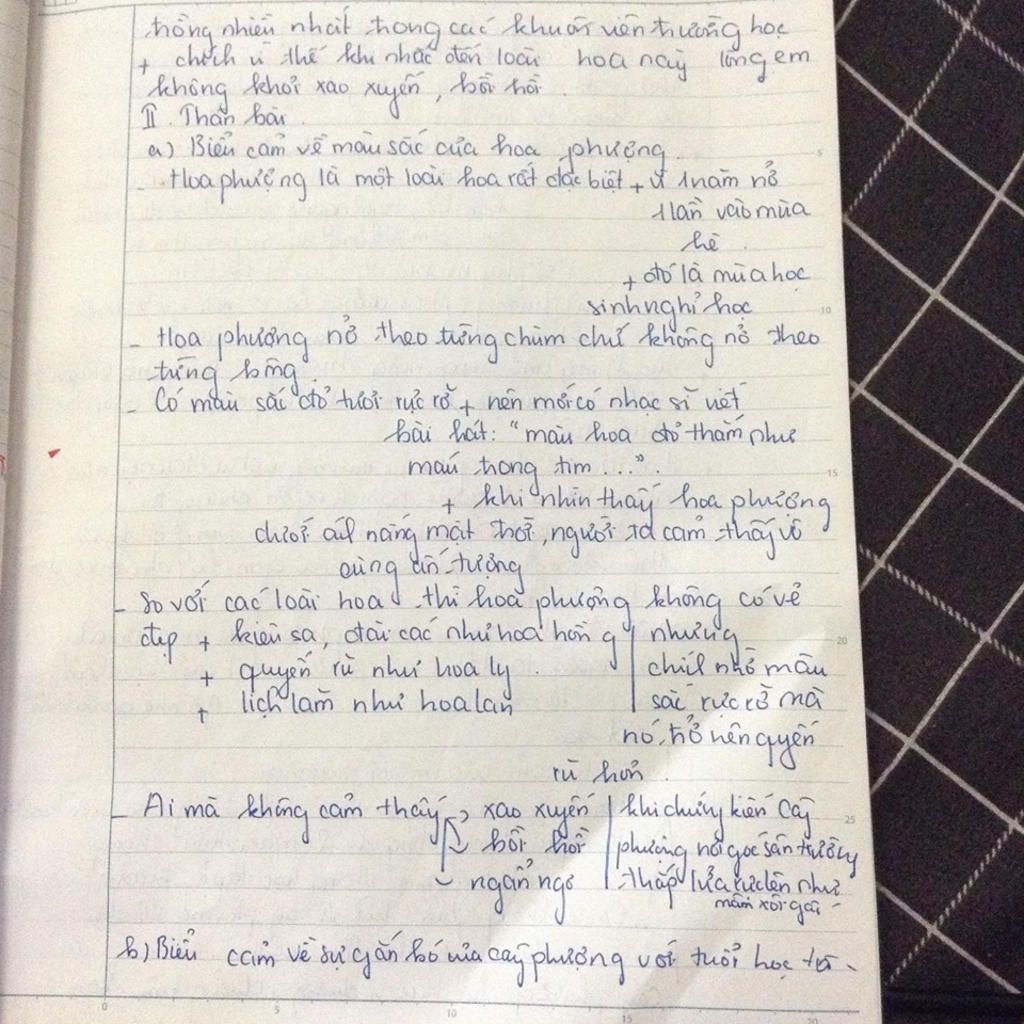 trồng nhiều nhất trong các khuôn viên trường học
+ chính vì thế khi nhắc đến loài hoa này lòng em
không khỏi xao xuyến, bồi hồi.
II. Thân bài.
a) Biểu cảm về màu sắc của hoa phượng.
Hoa phượng là một loài hoa rất đặc biệt + vì 1 năm nở
1 lần vào mùa
hè.
+ đó là mùa học
sinh nghỉ học
- Hoa phượng nở theo từng chùm chứ không nở theo
từng bông.
Có màu sắc đỏ tươi rực rỡ + nên mới có nhạc sĩ viết
bài hát: "màu hoa đỏ thắm như
máu trong tim ...".
+ khi nhìn thấy hoa phượng
dưới ánh nắng mặt trời, người ta cảm thấy vô
cùng ấn tượng
- So với các loài hoa thì hoa phượng không có vẻ
đẹp + kiêu sa, đài các như hoa hồng | nhưng
+ quyến rũ như hoa ly. | chính nhờ màu
+ lịch lãm như hoa lan | sắc rực rỡ mà
nó trở nên quyến
rũ hơn.
- Ai mà không cảm thấy xao xuyến | khi chứng kiến cây
bồi hồi | phượng nơi góc sân trường
ngẩn ngơ | thắp lửa rực lên như
mâm xôi gấc
b) Biểu cảm về sự gắn bó của cây phượng với tuổi học trò.
5
10
15
20
25
0 5 10 15 20